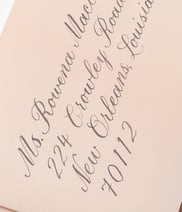 Ms. Rowena
224 Crowley Road
New Orleans, Louisia
70112